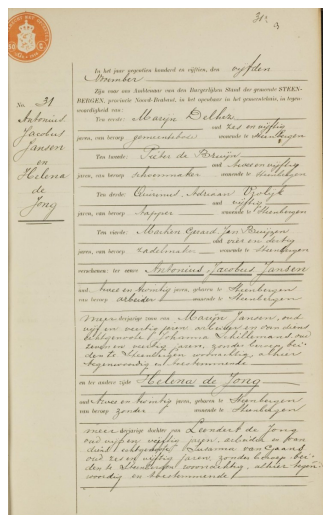 No. 31
Antonius
Jacobus
Jansen
en
Helena
de
Jong
In het jaar negentien honderd en vijftien, den vijfden
November
Zijn voor ons Ambtenaar van den Burgerlijken Stand der gemeente STEEN-
BERGEN, provincie Noord-Brabant, in het openbaar in het gemeentehuis, in tegen-
woordigheid van:
Ten eerste: Marijn
oud zes en vijftig
jaren, van beroep gemeentebode wonende te Steenbergen
Ten tweede: Pieter de Bruijn
oud twee en vijftig
jaren, van beroep schoenmaker wonende te Steenbergen
Ten derde: Adriaan
oud vijftig
jaren, van beroep tapper wonende te Steenbergen
Ten vierde: Gerard Jan
oud vier en dertig
jaren, van beroep zadelmaker wonende te Steenbergen
verschenen: ter eenre Antonius Jacobus Jansen
oud twee en twintig jaren, geboren te Steenbergen
van beroep arbeider wonende te Steenbergen
meerderjarige zoon van Marijn Jansen, oud
vijf en veertig jaren arbeider en van diens
echtgenoote Johanna oud
zeven en veertig jaren, zonder beroep bei-
den te Steenbergen woonachtig alhier
tegenwoordig en toestemmende
en ter andere zijde Helena de Jong
oud twee en twintig jaren, geboren te Steenbergen
van beroep zonder wonende te Steenbergen
meerderjarige dochter van Leendert de Jong
oud vijf en vijftig jaren, arbeider en van
diens echtgenoote Susanna van
oud zes en vijftig jaren zonder beroep bei-
den te Steenbergen woonachtig, alhier tegen-
woordig en toestemmende